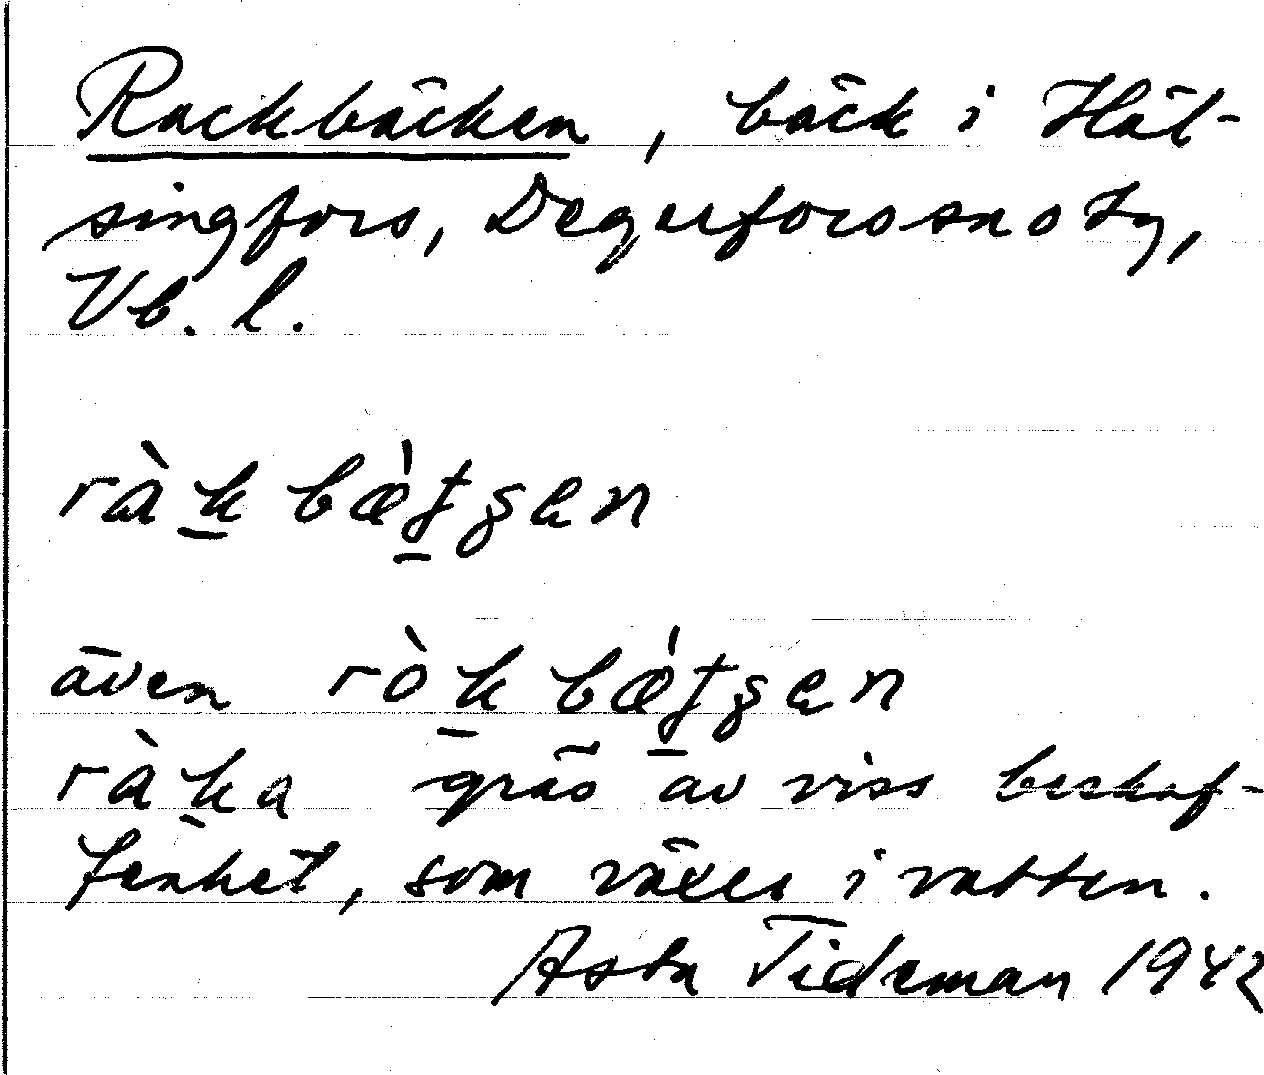 Rackbäcken, bäck i Häl-
singfors, Degerforss na o tg,
Vb. l.
ràk bæ̀tʂen
även ròk bæ̀tʂen
ràka gräs av viss beskaf-
fenhet, som växer i vatten.
Asta Tideman 1942